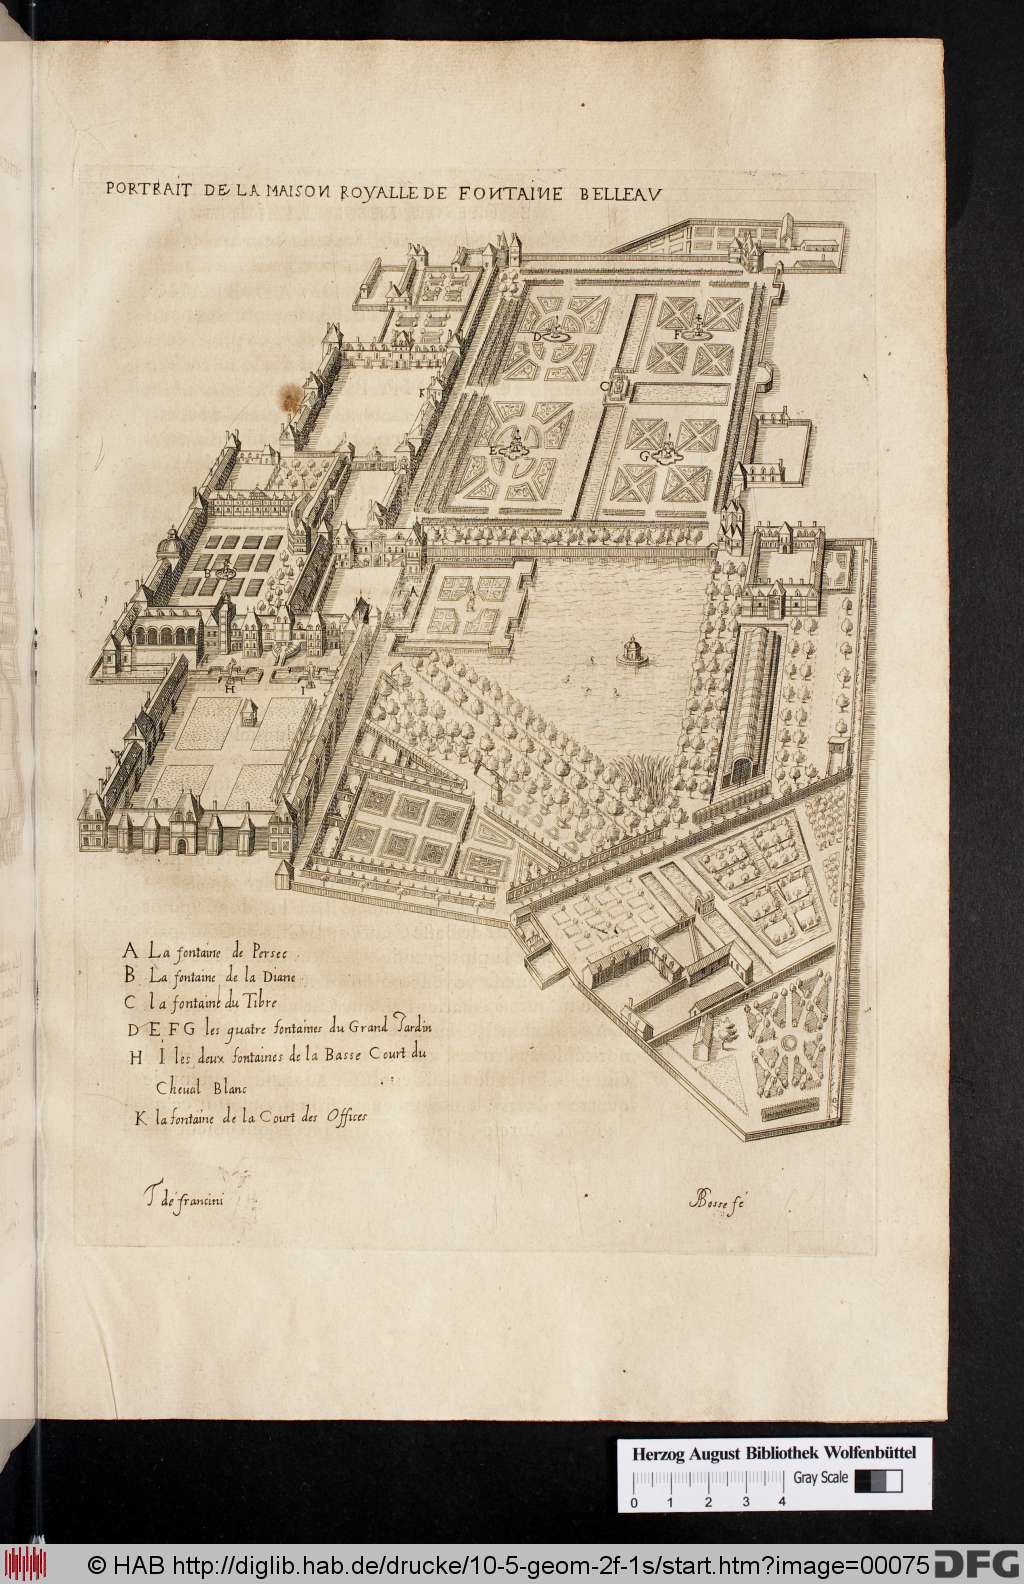 PORTRAIT DE LA MAISON ROYALLE DE FONTAINE BELLEAV
D
F
C
K
E
G
B
A
H
I
A La fontaine de Persee
B La fontaine de la Diane
C la fontaine du Tibre
D E F G les quatre fontaines du Grand Jardin
H I les deux fontaines de la Basse Court du
Cheual Blanc
K la fontaine de la Court des Offices
T de francini
ABosse fe
Herzog August Bibliothek Wolfenbüttel
Gray Scale
0 1 2 3 4
© HAB http://diglib.hab.de/drucke/10-5-geom-2f-1s/start.htm?image=00075
DFG